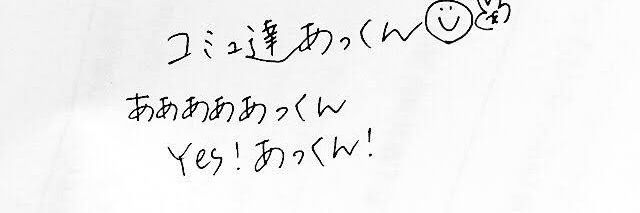 コミュ達あっくん
ああああああっくん
Yes!あっくん!